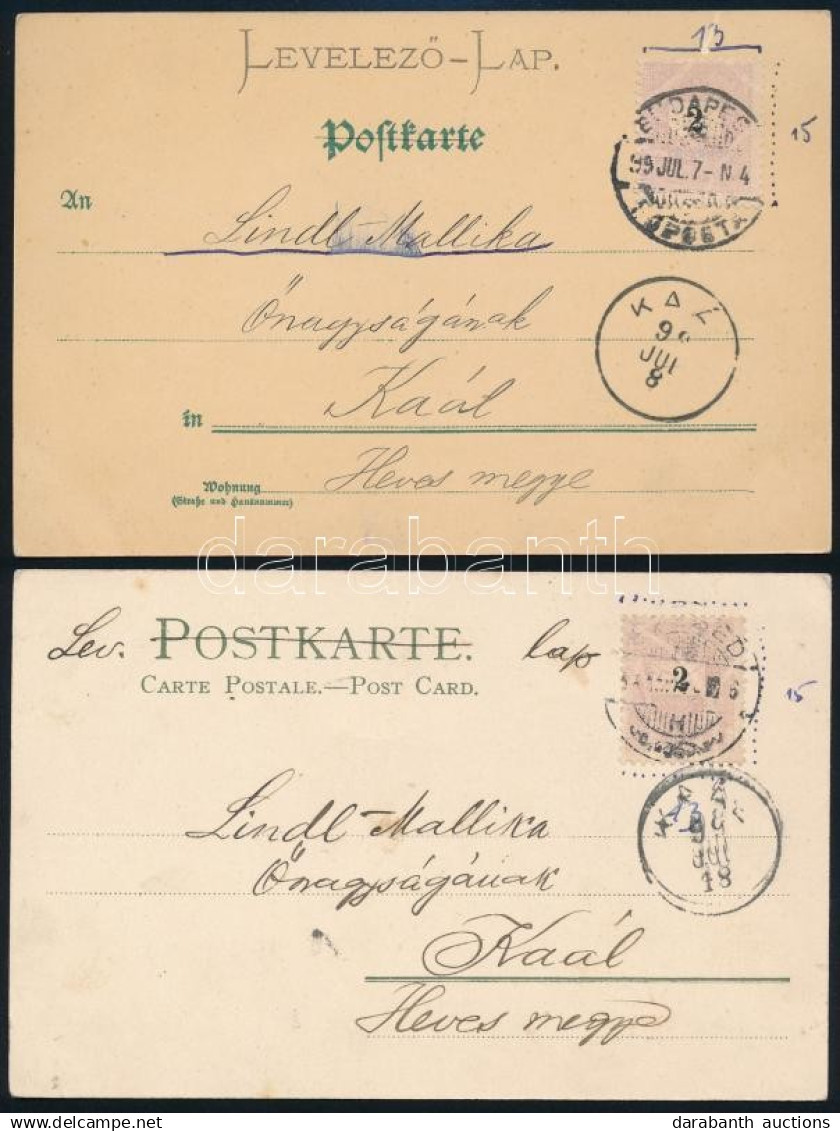 LEVELEZŐ-LAP.
13
Postkarte
2
15
BUDAPES
99 JUL. 7- N 4
FŐPOSTA
An Lindl-Mallika
Őnagyságának
KÁL
JUL
8
in Kaál
Wohnung
(Straße und Hausnummer)
Heves megye
darabanth
Lev. POSTKARTE. lap
CARTE POSTALE.—POST CARD.
2
15
13
KÁL
18
Lindl-Mallika
Őnagyságának
Kaál
Heves megye
darabanth auctions